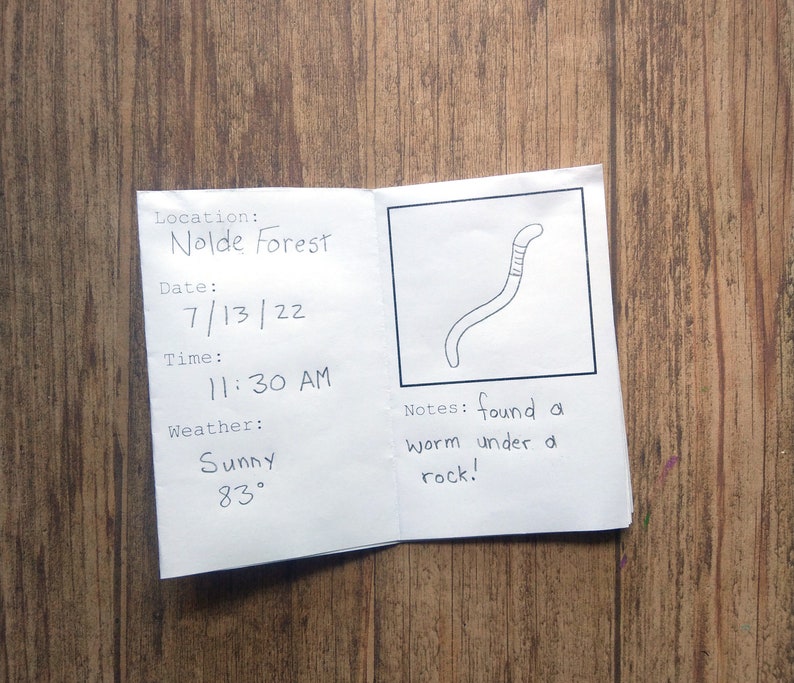 Location:
Nolde Forest
Date:
7/13/22
Time:
11:30 AM
Weather:
Sunny
83°
Notes: found a
worm under a
rock!